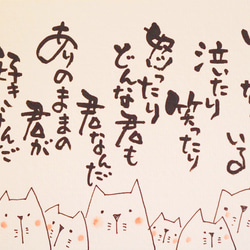 いる
泣いたり
笑ったり
怒ったり
どんな君も
君なんだ
ありのままの
君が
好きなんだ